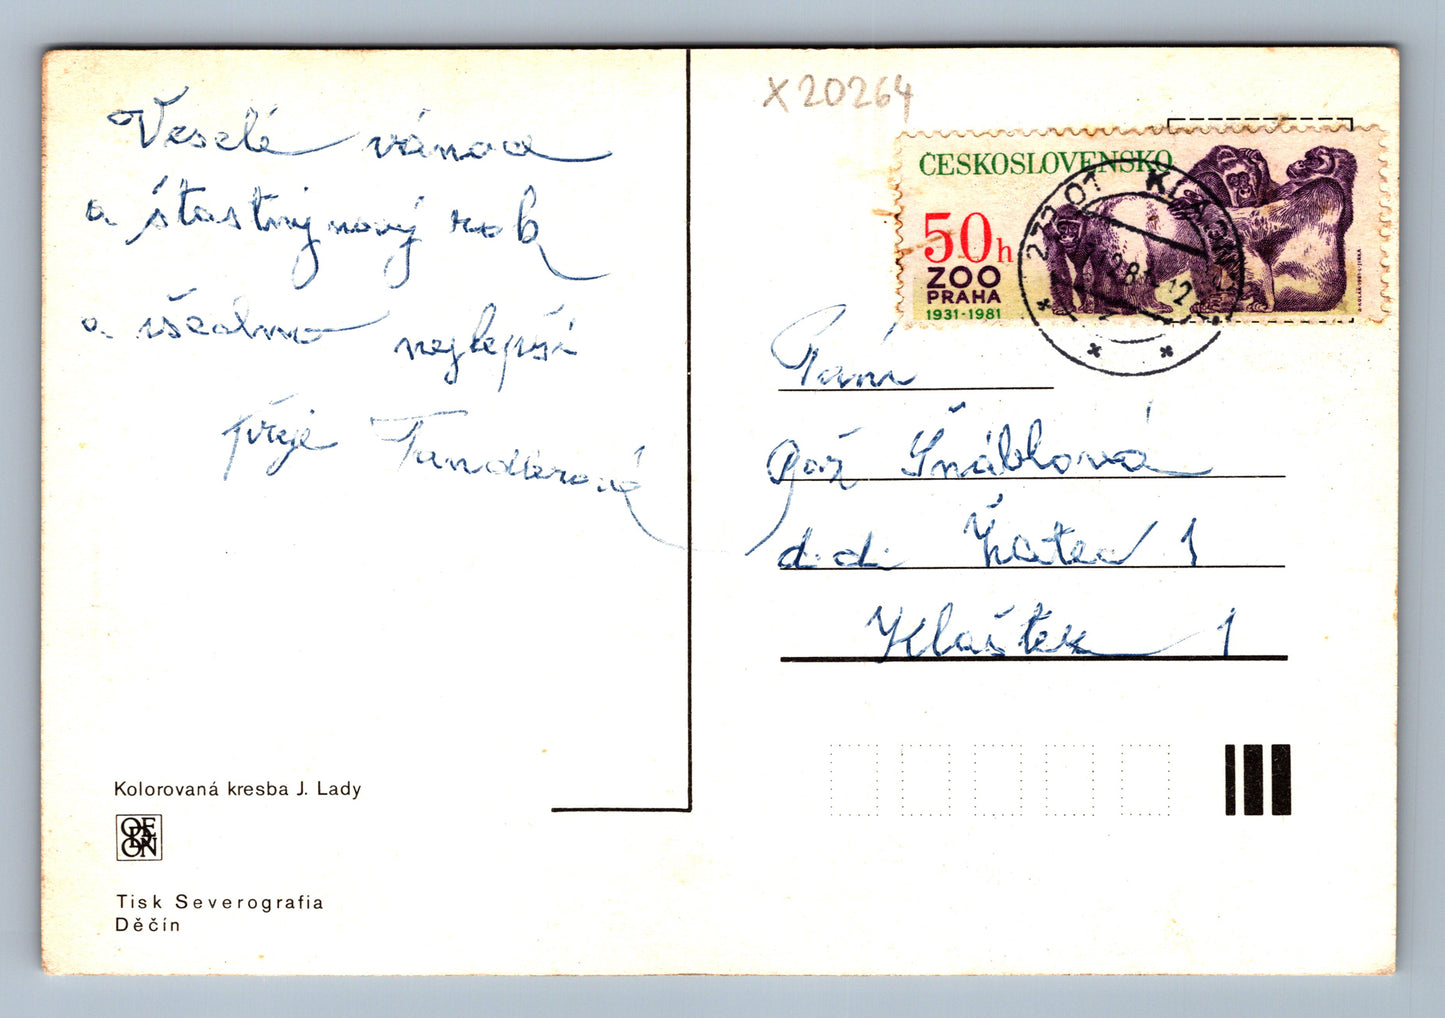 Veselé vánoce
a šťastný nový rok
a všeho nejlepší
přeje Fanderová
Kolorovaná kresba J. Lady
ODEON
Tisk Severografia
Děčín
X20264
ČESKOSLOVENSKO
50h
ZOO
PRAHA
1931-1981
Paní
Šnáblová
Žatec 1
Klaštek 1